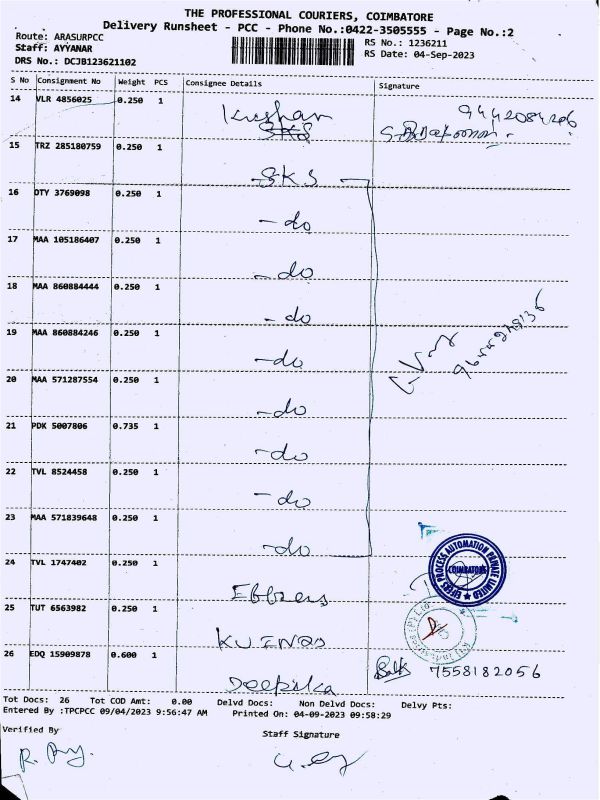 THE PROFESSIONAL COURIERS, COIMBATORE
Delivery Runsheet - PCC - Phone No.:0422-3505555 - Page No.:2
Route: ARASURPCC
Staff: AYYANAR
DRS No.: DCJB123621102
RS No.: 1236211
RS Date: 04-Sep-2023
S No Consignment No Weight PCS Consignee Details Signature
14 VLR 4856025 0.250 1 Kushan 9442084206
SKS
15 TRZ 285180759 0.250 1 SKS
16 DTY 3769098 0.250 1 - do
17 MAA 105186407 0.250 1 - do
18 MAA 860884444 0.250 1 - do
19 MAA 860884246 0.250 1 - do
20 MAA 571287554 0.250 1 - do
21 PDK 5007806 0.735 1 - do
22 TVL 8524458 0.250 1 - do
23 MAA 571839648 0.250 1 - do
24 TVL 1747402 0.250 1
EFFERS PROCESS AUTOMATION PRIVATE LIMITED
COIMBATORE
25 TUT 6563982 0.250 1
26 EDQ 15909878 0.600 1 Deepika 7558182056
Tot Docs: 26 Tot COD Amt: 0.00 Delvd Docs: Non Delvd Docs: Delvy Pts:
Entered By :TPCPCC 09/04/2023 9:56:47 AM Printed On: 04-09-2023 09:58:29
Verified By
Staff Signature